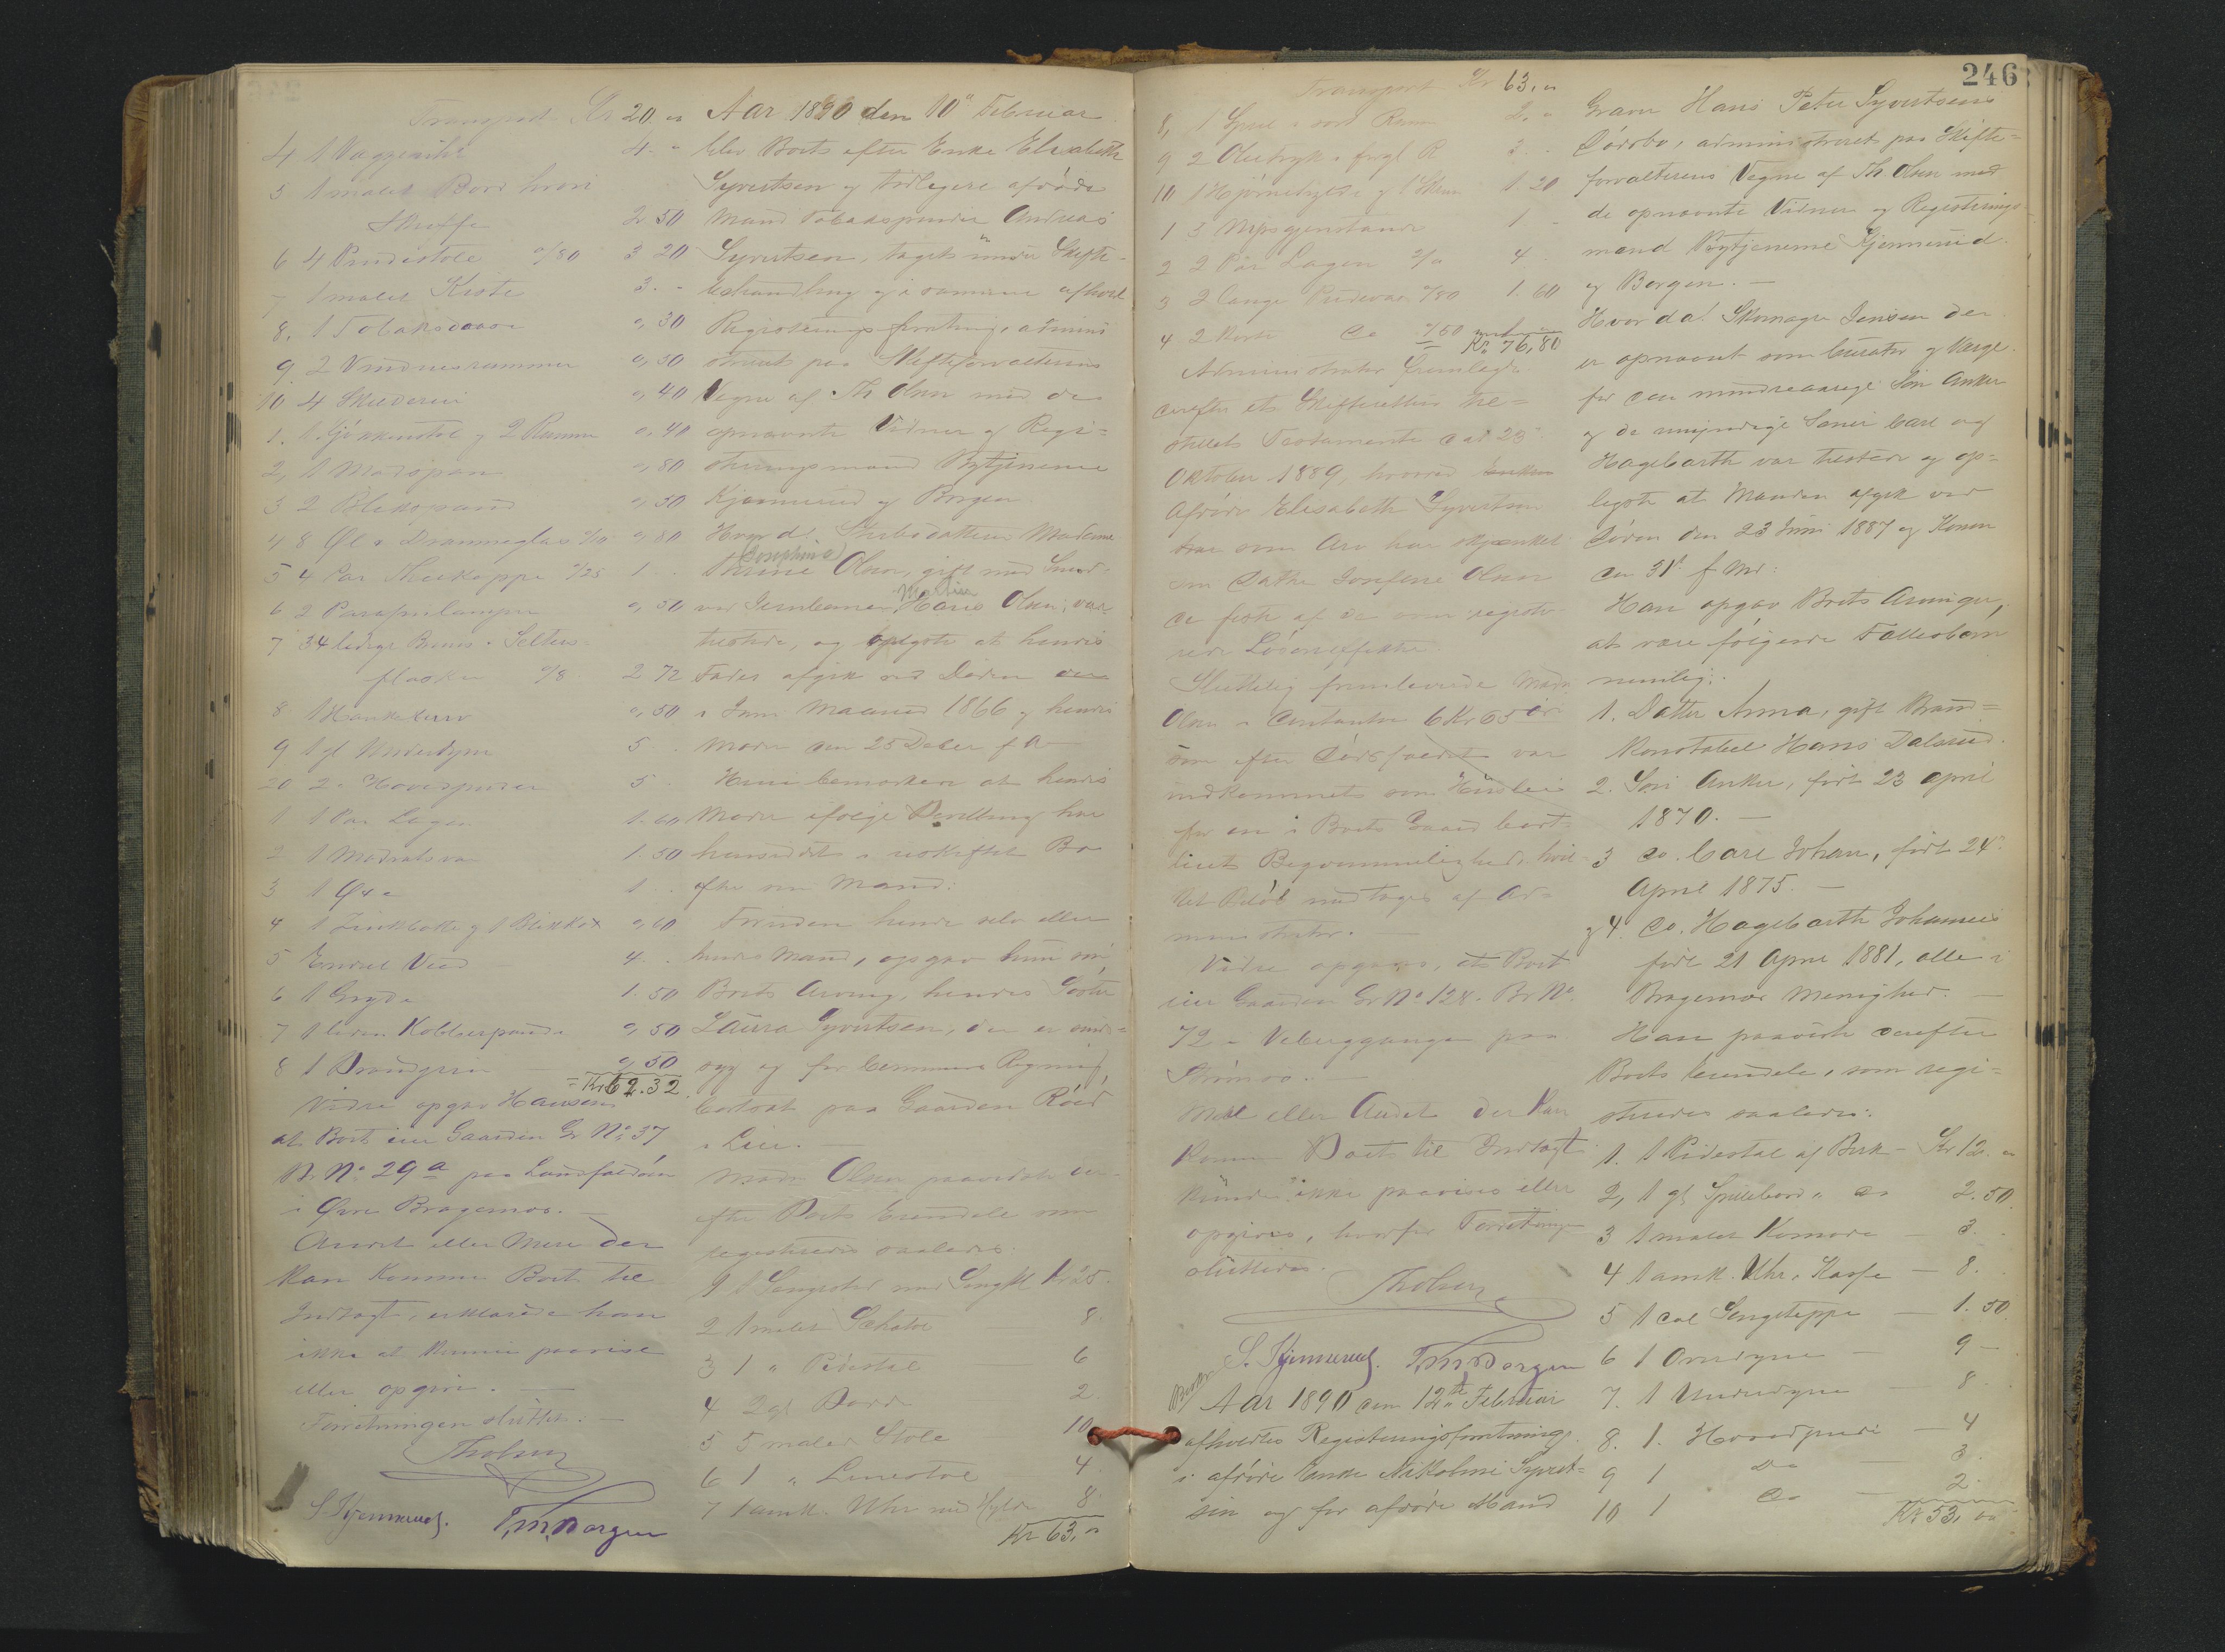 Transport Kr 20 "
4 1 4. "
5 1 malet Bord hvori
Skuffe 2 50
6 4 Pindestole "/80 3 20
7 1 malet Kiste 3. "
8. 1 Tobaksdaase 0,30
9. 2 Vinduesrammer 0,50
10 4 Skilderier 0,40
1. 1 Gjökkenstol og 2 Rammer 0,40
2, 1 0,80
3 2 Blikspand 0,50
4 8 Øl & Dramme glas "/10 0,80
5 4 Par Theekopper "/25 1 "
6 2 Parafinlamper 0,50
7 34 ledige Brus & Selters
flasker "/8 2 72
8 1 Hankekurv 0,50
9 1 gl Underdyne 5 "
20 2 Hovedpuder 5 "
1 1 Par Lagen 1. 60
2 1 Madratsvar 1. 50
3 1 Øxe 1 "
4 1 Zinkbøtte og 1 0,60
5 Endel Ved 4. "
6 1 Gryde 1. 50
7 1 liden Kobberpande 0,50
8 1 0,50
Kr 62.32
Vidre opgav Hansen
at Boet eier Gaarden Gr No 37
Br No 29 a paa Landfaldøen
i Øvre Bragernæs. —
Andet eller Mere der
kan komme Boet til
Indtægt, erklærede han
ikke at kunne paavise
eller opgive. —
Forretningen sluttet. —
Th Olsen
S. Kjennerud. T. M. Borgen
Aar 1890 den 10" Februar
blev Boets efter Enke Elisabeth
Syvertsen og tidligere afdøde
Mand Tobaksspinder Andreas
Syvertsen, taget under Skifte-
behandling og i samme afholdt
Registreringsforretning, admini
streret paa Skifteforvalterens
Vegne af Th Olsen med de
opnævnte Vidner og Regi=
streringsmænd Bytjenerne
Kjennerud og Borgen.
Hvorda! Stedsdatteren Madame
Josephine
Olsen, gift med Smed
Martin
ved Jernbanen Hans Olsen, var
tilstede, og oplyste at hendes
Fader afgik ved Døden
i Juni Maaned 1866 og hendes
Moder den 25 Decbr f A
Hun bemærker at hendes
Moder ifølge Bevilling har
hensiddet i uskiftet Bo
efter sin Mand:
Foruden hende selv eller
hendes Mand, opgav hun som
Boets Arving, hendes Søster
Laura Syvertsen, der er sinds=
syg og for Communens Regning
bortsat paa Gaarden Röed
i Lier. —
Madm Olsen paaviste der-
efter Boets Eiendele som
registreredes saaledes:
1 1 Sengested med Kr 25.
2 1 malet Schatol 8
3 1 " Pidestal 6
4 2 gl Borde 2.
5 5 malede Stole 10
6 1 " Lænestol 4
7 1 amk. Uhr med Hylde 8
Kr 63,"
246
Transport Kr 63,"
8, 1 Speil i sort Ramme 2, "
9 2 Olietryk i forgl R 2 "
10 1 Hjørnehylde og 1 1. 20
1 3 Nipsgjenstande 1 "
2 2 Par Lagen 2/" 4 "
3 2 lange Pudevar "/80 1. 60
4 2 korte do "/50
Kr 76,80
Administrator fremlagde
derefter et Skifteretten til=
stillet Testamente dat 23
Oktober 1889, hvorved Enken
Afdøde Elisabeth Syvertsen
som Arv har skjænket
sin Datter Josefine Olsen
de fleste af de oven registre
rede Løsøreeffekter.
Sluttelig fremleverede Madm
Olsen i Contanter 6 Kr 65 Øre
som efter Dødsfaldet var
indkommet som Husleie
for en i Boets Gaard bort-
leiet Beqvemmelighed, hvil-
ket Beløb modtages af Ad-
ministrator. —
Vidre opgaves, at Boet
eier Gaarden Gr No 128. Br No
72 i Veberggangen paa
Strømsø.
Mere eller Andet der kan
komme Boet til Indtægt
kunde ikke paavises eller
opgives, hvorfor Forretningen
sluttedes.
Th Olsen
S. Kjennerud. T. M. Borgen
Aar 1890 den 12te Februar
afholdtes Registreringsforretning
i afdøde Enke Nikoline Syvert=
sen og før afdøde Mand
Graver Hans Peter Syvertsens
Dødsbo, administreret paa Skifte=
forvalterens Vegne af Th Olsen med
de opnævnte Vidner og Registrerings-
mænd Bytjenerne Kjennerud
og Borgen. —
Hvorda! Skomager Jensen der
er opnævnt som Curator og Værge
for den mindreaarige Søn Anker
og de umyndige Sønner Carl og
Hagebarth var tilstede og op=
lyste at Manden afgik ved
Døden den 23 Juni 1887 og Konen
den 31t f Md:
Han opgav Boets Arvinger,
at være følgende Fællesbørn
nemlig:
1. Datter Anna, gift Brand=
konstabel Hans Dalsrud.
2. Søn Anker, født 23 April
1870. —
3 do. Carl Johan, født 24"
April 1875. —
og 4. do. Hagebarth Johannes
født 21 April 1881, alle i
Bragernæs Menighed. —
Han paaviste derefter
Boets Eiendele, som regi=
streredes saaledes:
1. 1 Pidestal af Birk - Kr 12. "
2, 1 gl Spillebord " do 2. 50
3 1 malet Komode — 3. "
4 1 amk. Uhr i Kasse — 8. "
5 1 Sengeteppe — 1. 50
6 1 Overdyne — 9 —
7. 1 Underdyne — 8 "
8. 1. Hovedpude — 4
9 1 do — 3.
10 1 do — 2.
Kr 53, "